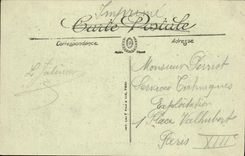 Imprimé
Carte Postale
Correspondance
Adresse
Monsieur Perriot
Services Techniques
Exploitation
Place Valhubert
Paris XIIIe